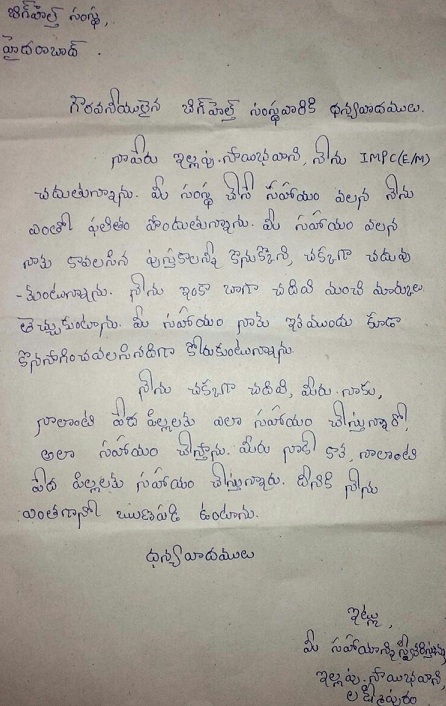 బిగ్‌హెల్ప్ సంస్థ,
హైదరాబాద్.
గౌరవనీయులైన బిగ్‌హెల్ప్ సంస్థవారికి ధన్యవాదములు.
నాపేరు ఇల్లపు.సాయిభవాని, నేను IMPC(E/M)
చదుతున్నాను. మీ సంస్థ చేసే సహాయం వలన నేను
ఎంతో ఫలితం పొందుతున్నాను. మీ సహాయం వలన
నాకు కావలసిన పుస్తకాలన్నీ కొనుక్కొని, చక్కగా చదువు
-కుంటున్నాను. నేను ఇంకా బాగా చదివి మంచి మార్కులు
తెచ్చుకుంటాను. మీ సహాయం నాకు ఇకముందు కూడా
కొనసాగించవలసినదిగా కోరుకుంటున్నాను.
నేను చక్కగా చదివి, మీరు నాకు,
నాలాంటి పేద పిల్లలకు ఎలా సహాయం చేస్తున్నారో,
అలా సహాయం చేస్తాను. మీరు నాకే కాక, నాలాంటి
పేద పిల్లలకు సహాయం చేస్తున్నారు. దీనికి నేను
ఎంతగానో ఋణపడి ఉంటాను.
ధన్యవాదములు
ఇట్లు,
మీ సహాయాన్ని స్వీకరిస్తున్న
ఇల్లపు.సాయిభవాని,
లక్కవరం